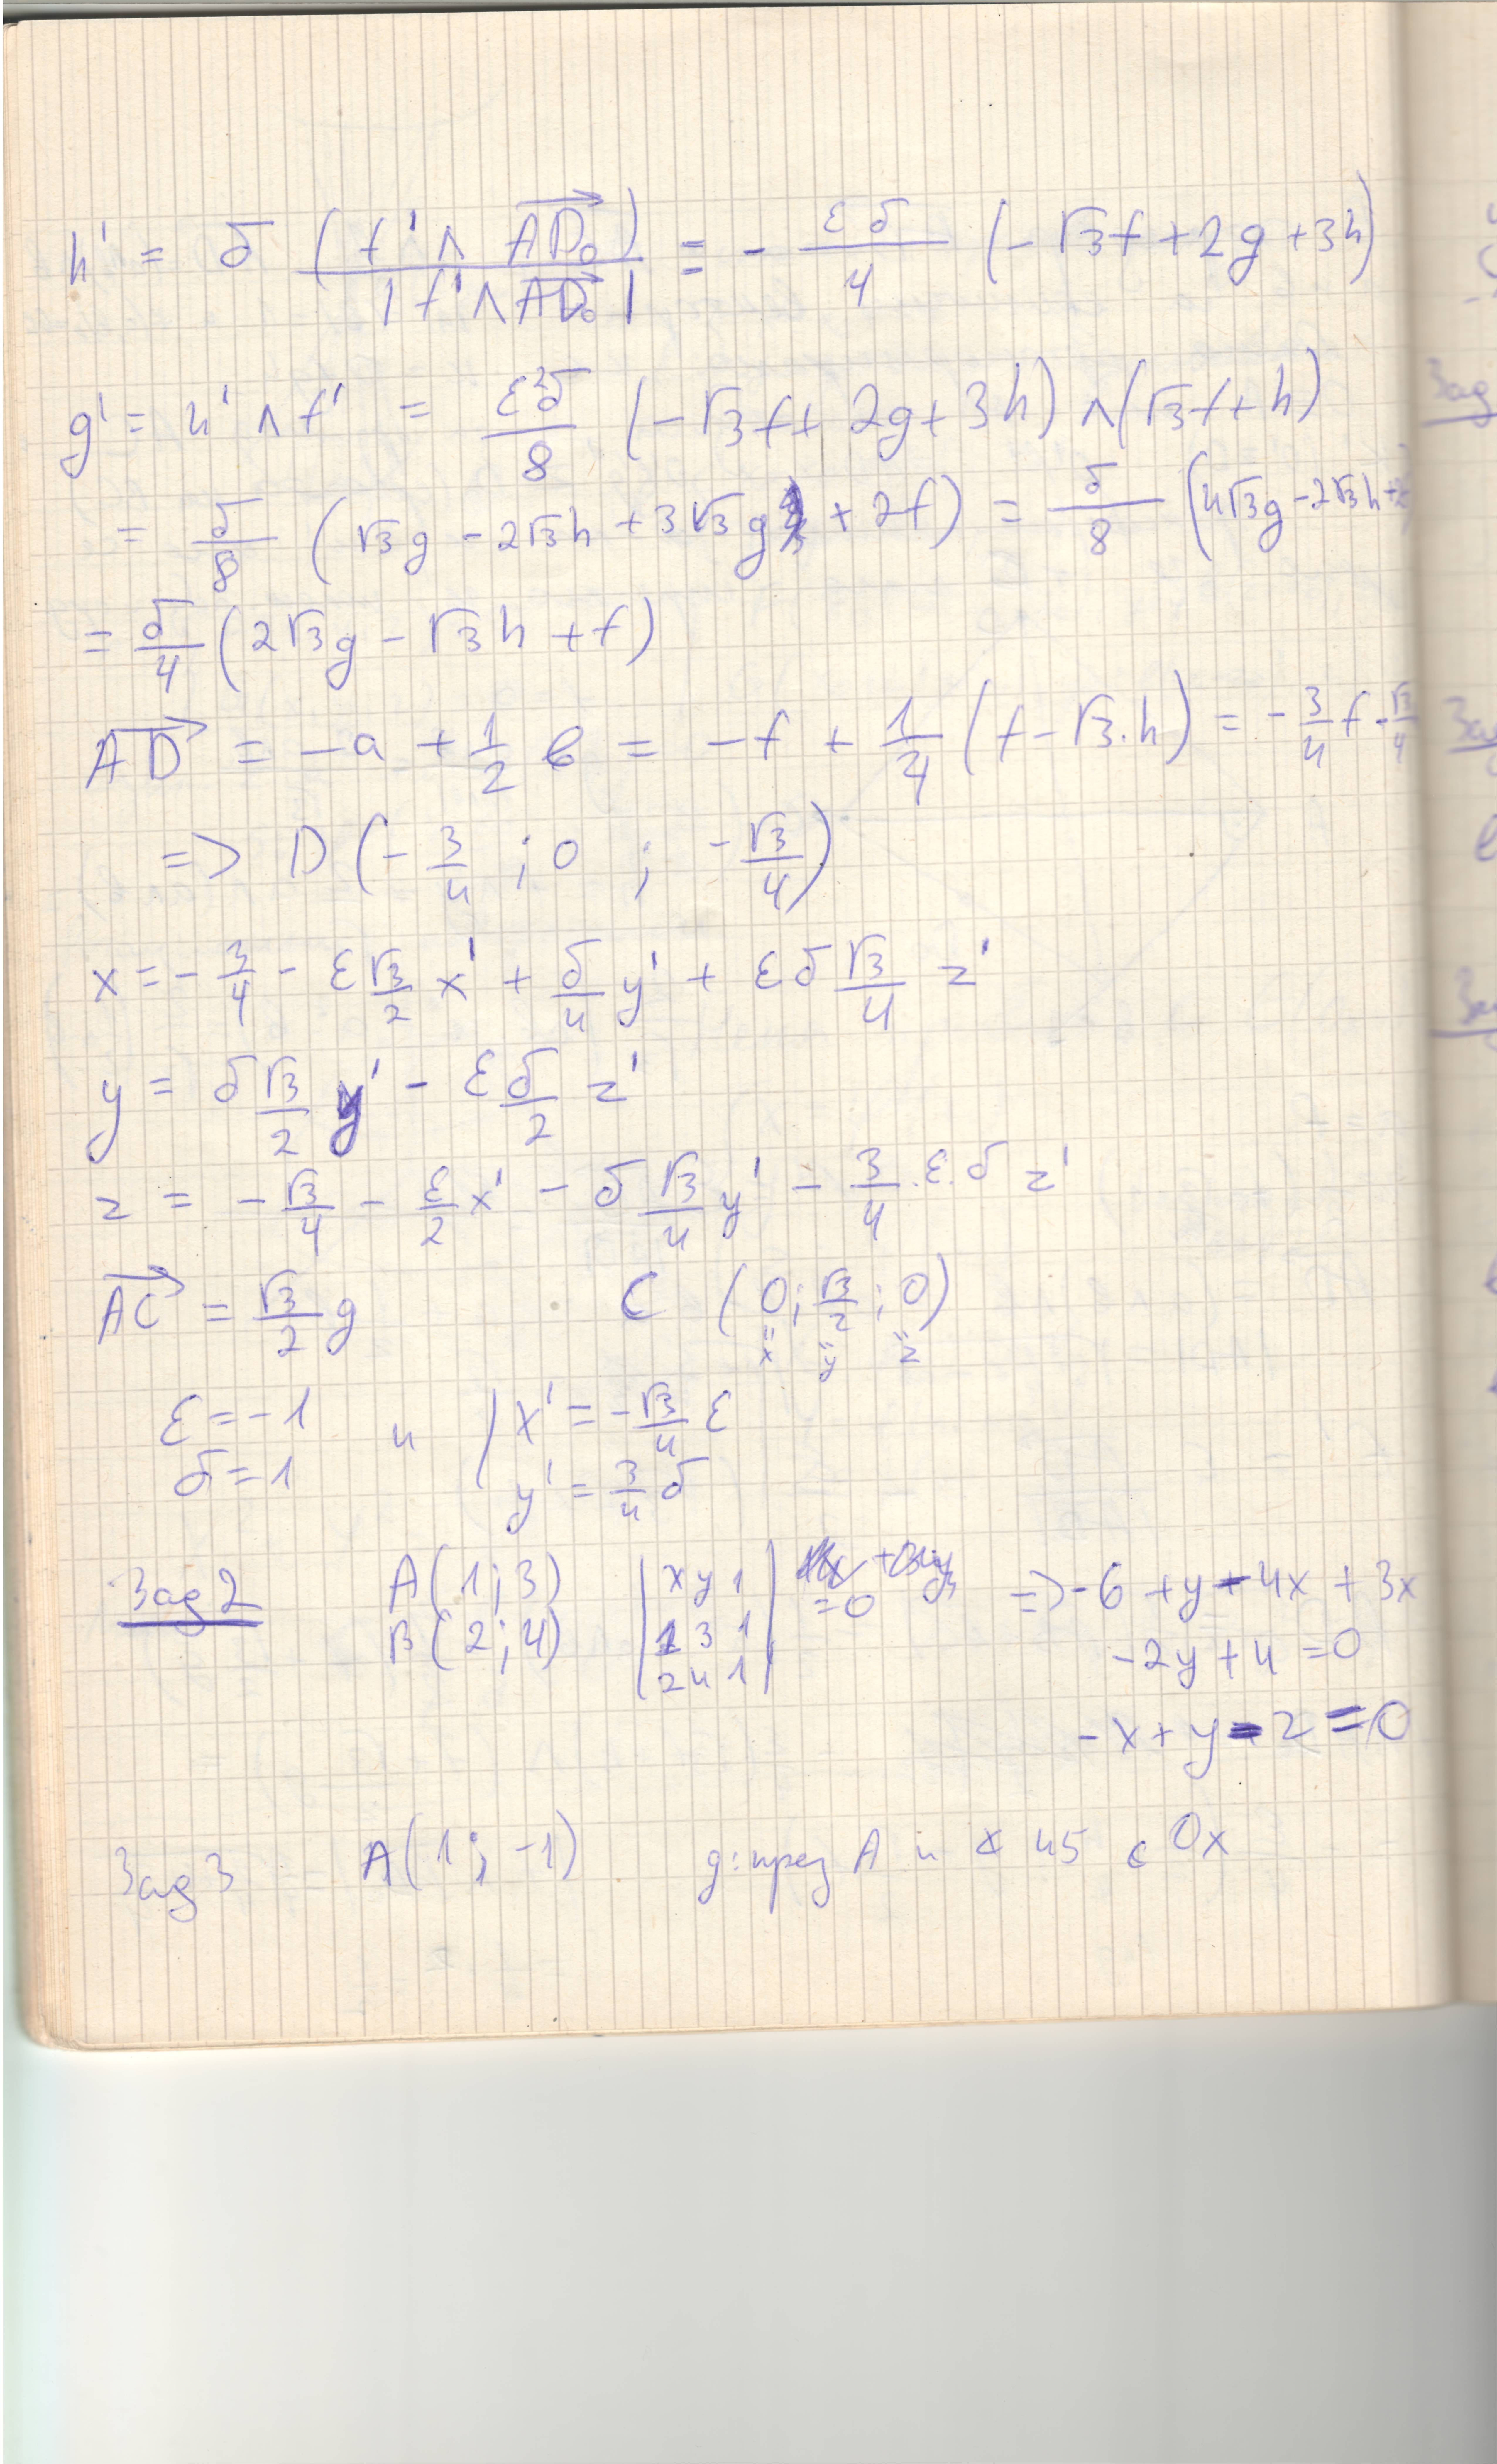 h' = δ (f' ∧ AD₀) / |f' ∧ AD₀| = - εδ/4 (-√3f + 2g + 3h)
g' = h' ∧ f' = ε²δ/8 (-√3f + 2g + 3h) ∧ (√3f + h)
= δ/8 (√3g - 2√3h + 3√3g + 2f) = δ/8 (4√3g - 2√3h +
= δ/4 (2√3g - √3h + f)
AD = -a + 1/2 b = -f + 1/4 (f - √3.h) = -3/4 f - √3/4
=> D (-3/4 ; 0 ; -√3/4)
x = -3/4 - ε √3/2 x' + δ/4 y' + εδ √3/4 z'
y = δ √3/2 y' - ε δ/2 z'
z = -√3/4 - ε/2 x' - δ √3/4 y' - 3/4 .ε.δ z'
AC = √3/2 g C (0; √3/2 ; 0)
=x =y =z
ε = -1 и | x' = -√3/4 ε
δ = 1 y' = 3/4 δ
Зад 2 A(1;3) |x y 1| = 0 => -6 + y - 4x + 3x
B(2;4) |1 3 1| -2y + 4 = 0
|2 4 1|
-x + y - 2 = 0
Зад 3 A(1; -1) g: през A и ∢ 45 с Ox